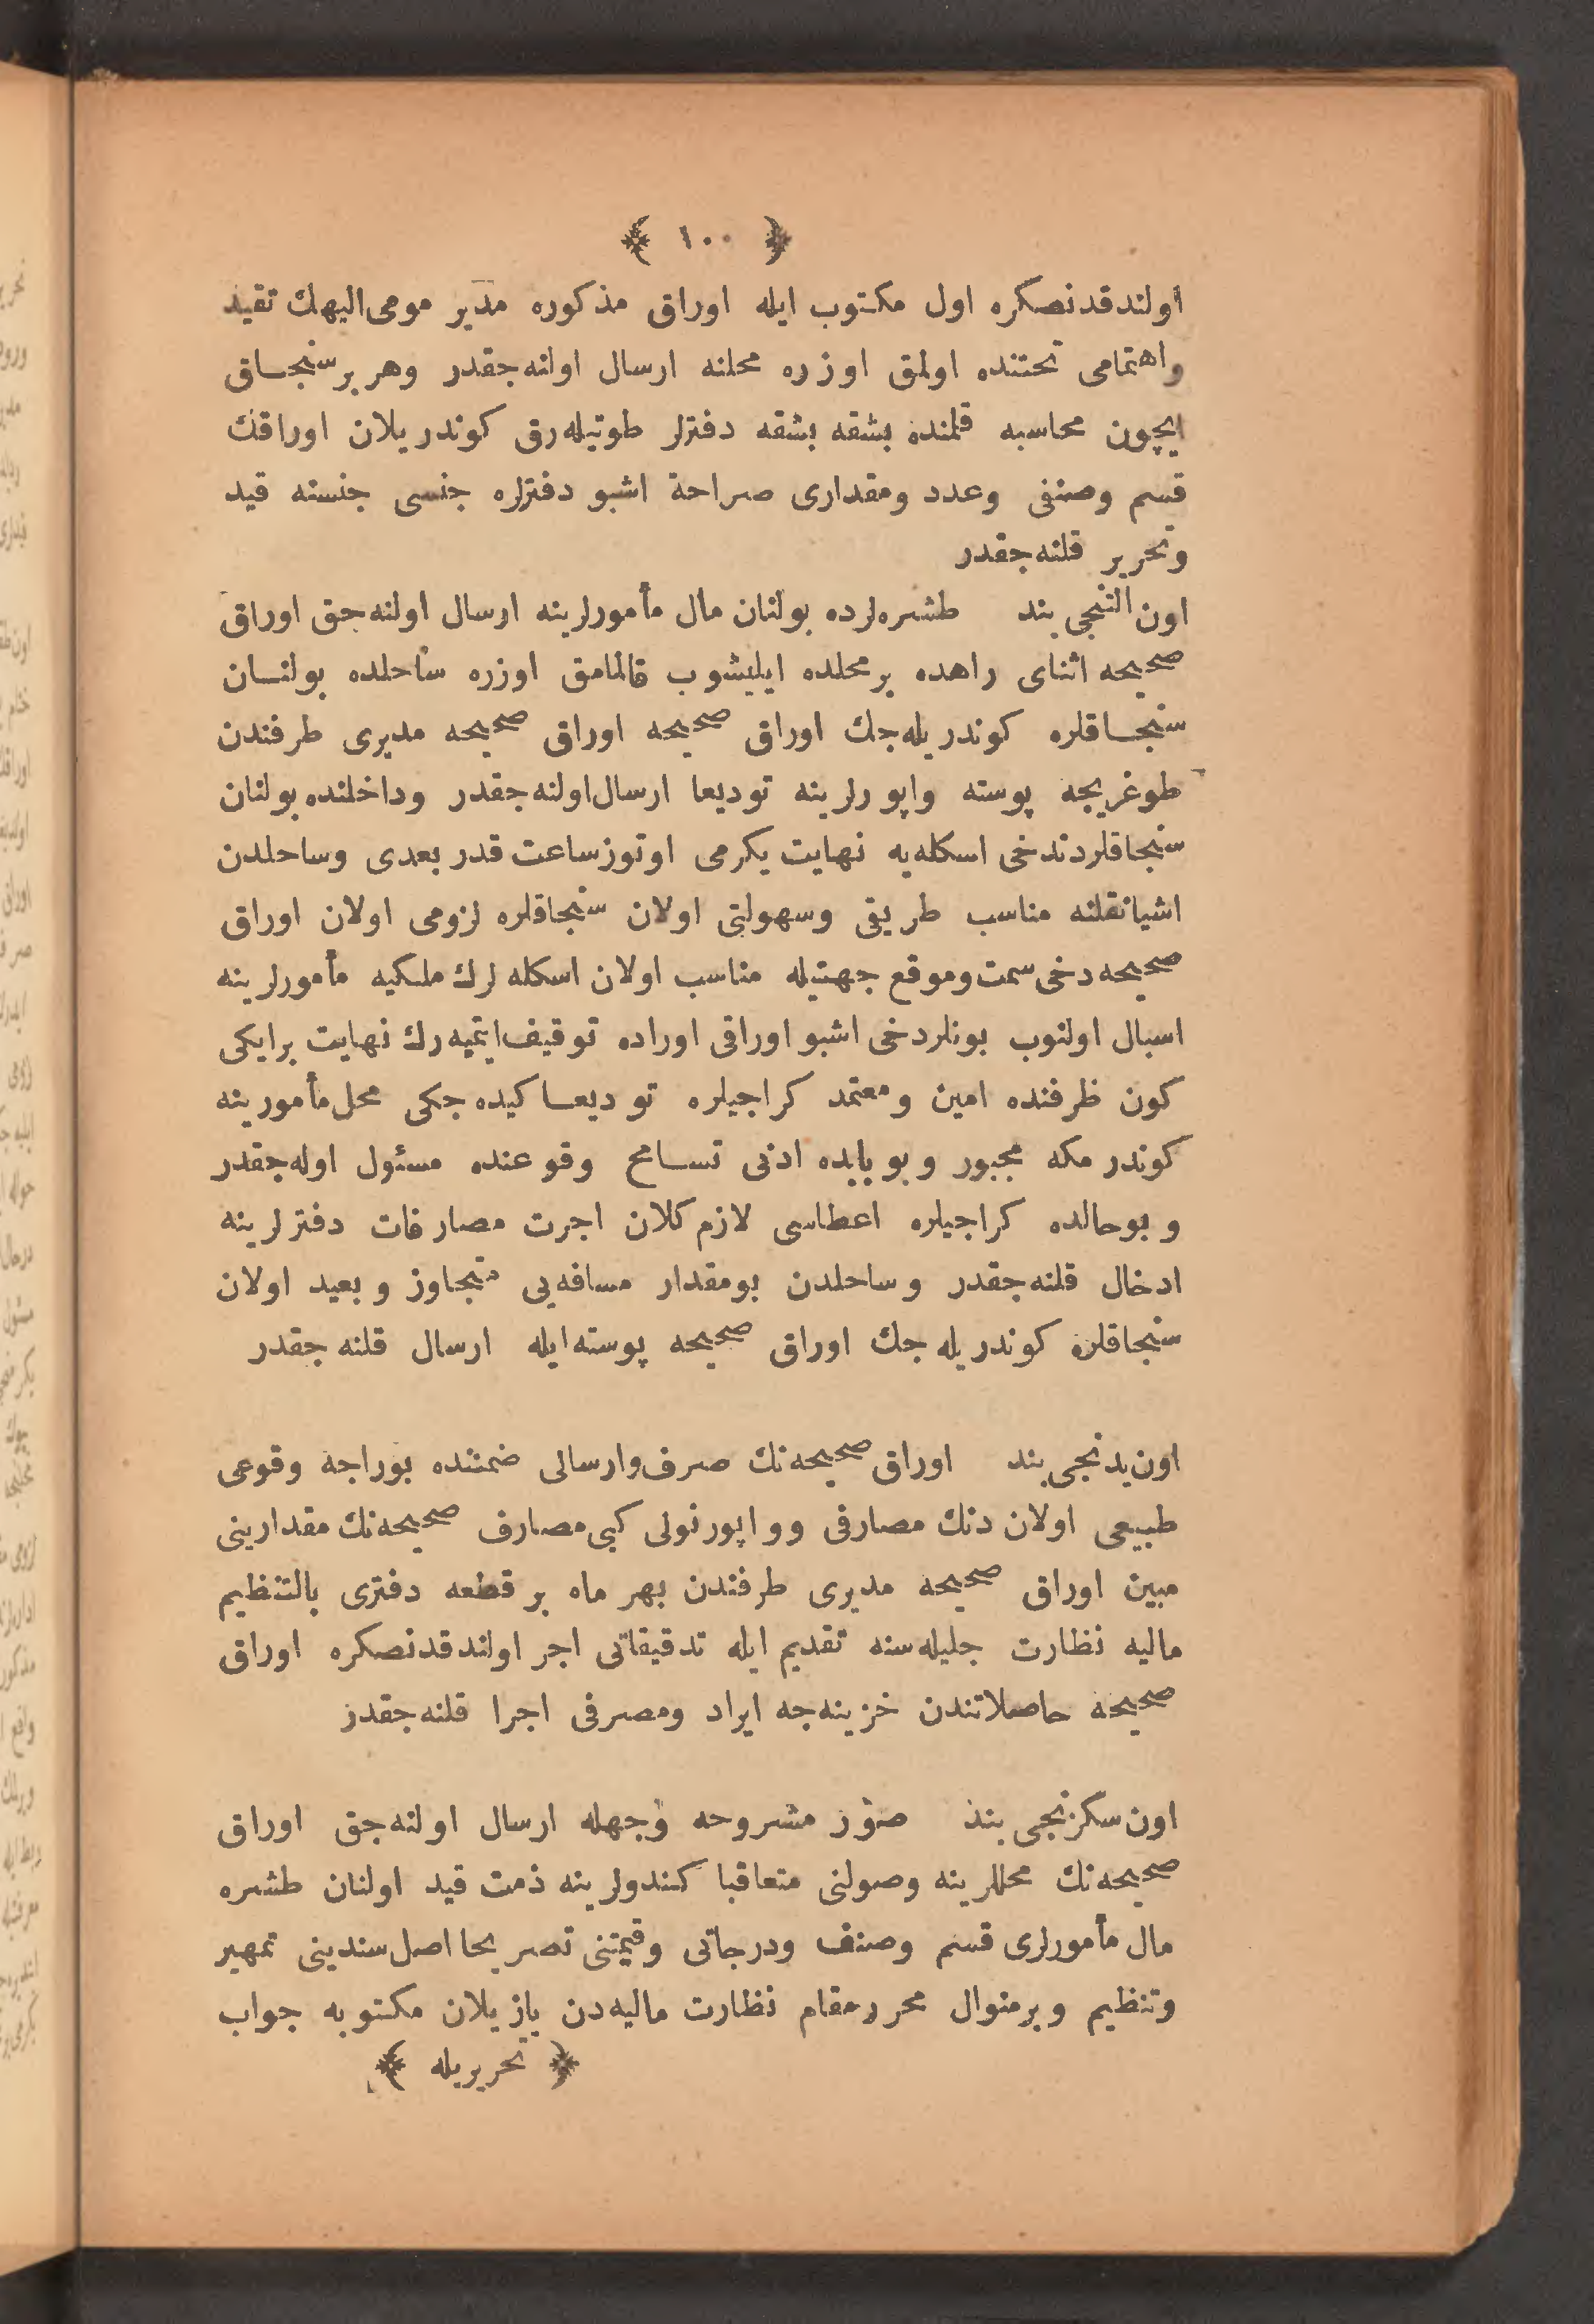 ﴿ ١٠٠ ﴾
اولندقدنصكره اول مكتوب ايله اوراق مذكوره مدير مومى‌اليهك تقيد
واهتمامى تحتنده اولمق اوزره محلنه ارسال اولنه‌جقدر وهر برسنجاق
ايچون محاسبه قلمنده بشقه بشقه دفترلر طوتيله‌رق كوندريلان اوراقك
قسم وصنفى وعدد ومقدارى صراحة اشبو دفترلره جنسى جنسنه قيد
وتحرير قلنه‌جقدر
اون التنجى بند طشره‌لرده بولنان مال مأمورلرينه ارسال اولنه‌جق اوراق
صحيحه اثناى راهده برمحلده ايليشوب قالمامق اوزره ساحلده بولنان
سنجاقلره كوندريله‌جك اوراق صحيحه اوراق صحيحه مديرى طرفندن
طوغريجه پوسته واپورلرينه توديعا ارسال اولنه‌جقدر وداخلنده بولنان
سنجاقلردندخى اسكله‌يه نهايت يكرمى اوتوز ساعت قدر بعدى وساحلدن
اشيانقلنه مناسب طريقى وسهولتى اولان سنجاقلره لزومى اولان اوراق
صحيحه دخى سمت وموقع جهتيله مناسب اولان اسكله لرك ملكيه مأمورلرينه
اسبال اولنوب بونلردخى اشبو اوراقى اوراده توقيف ايتميه‌رك نهايت برايكى
كون ظرفنده امين ومعتمد كراجيلره توديعا كيده‌جكى محل مأمورينه
كوندرمكه مجبور وبوبابده ادنى تسامح وقوعنده مسئول اوله‌جقدر
وبوحالده كراجيلره اعطاسى لازم كلان اجرت مصارفات دفترلرينه
ادخال قلنه‌جقدر وساحلدن بومقدار مسافه‌يى متجاوز وبعيد اولان
سنجاقلره كوندريله‌جك اوراق صحيحه پوسته ايله ارسال قلنه‌جقدر
اون يدنجى بند اوراق صحيحه‌نك صرف وارسالى ضمننده بوراجه وقوعى
طبيعى اولان دنك مصارفى وواپورنولى كبى مصارف صحيحه‌نك مقدارينى
مبين اوراق صحيحه مديرى طرفندن بهر ماه بر قطعه دفترى بالتنظيم
ماليه نظارت جليله‌سنه تقديم ايله تدقيقاتى اجر اولندقدنصكره اوراق
صحيحه حاصلاتندن خزينه‌جه ايراد ومصرفى اجرا قلنه‌جقدر
اون سكزنجى بند صور مشروحه وجهله ارسال اولنه‌جق اوراق
صحيحه‌نك محللرينه وصولنى متعاقبا كندولرينه ذمت قيد اولنان طشره
مال مأمورلرى قسم وصنف ودرجاتى وقيمتنى تصريحا اصل سندينى تمهير
وتنظيم وبرمنوال محرر مقام نظارت ماليه‌دن يازيلان مكتوبه جواب
﴿ تحريريله ﴾